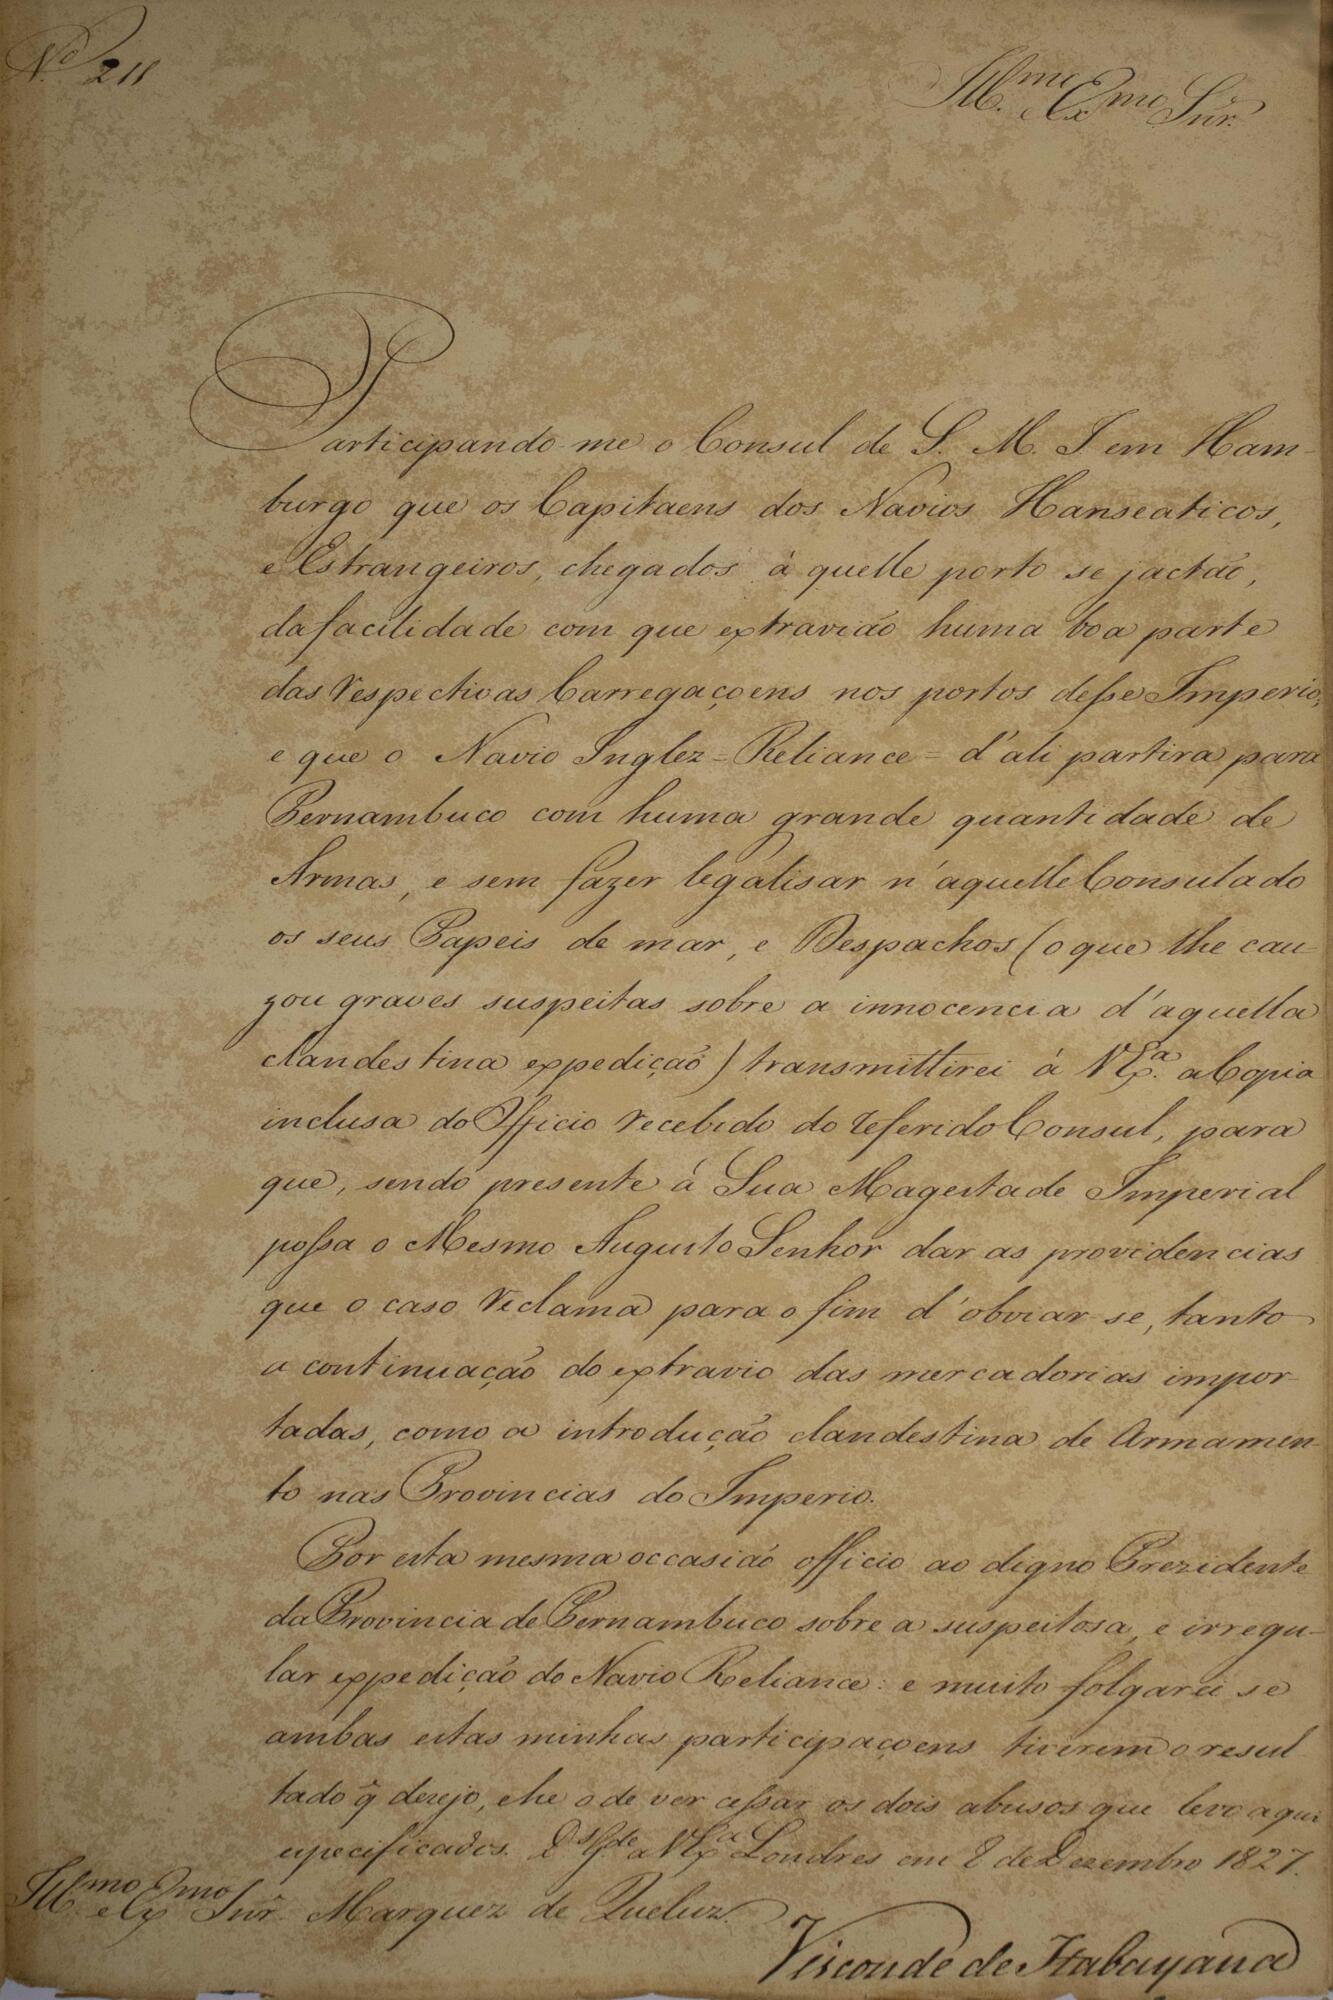 Nº 211
Illmo Exmo Snr.
Participando-me o Consul de S. M. I em Ham-
burgo que os Capitaens dos Navios Hanseaticos,
e Estrangeiros, chegados à quelle porto se jactão,
da facilidade com que extravião huma boa parte
das respectivas Carregaçoens nos portos desse Imperio,
e que o Navio Inglez = Reliance = d'ali partira para
Pernambuco com huma grande quantidade de
Armas, e sem fazer legalisar n'aquelle Consulado
os seus Papeis de mar, e Despachos (o que lhe cau-
zou graves suspeitas sobre a innocencia d'aquella
clandestina expedição) transmittirei á VExa. a Copia
inclusa do Officio recebido do referido Consul, para
que, sendo presente á Sua Magestade Imperial
possa o Mesmo Augusto Senhor dar as providencias
que o caso reclama para o fim d'obviar-se, tanto
a continuação do extravio das mercadorias impor-
tadas, como a introdução clandestina de Armamen-
to nas Provincias do Imperio.
Por esta mesma occasião officio ao digno Prezidente
da Provincia de Pernambuco sobre a suspeitosa, e irregu-
lar expedição do Navio Reliance: e muito folgarei se
ambas estas minhas participaçoens tiverem o resul-
tado q̃ desejo, che o de ver cessar os dois abusos que levo aqui
especificados. Ds Gde a VExa Londres em 8 de Dezembro 1827.
Illmo e Exmo Snr. Marquez de Queluz.
Visconde de Itabayana